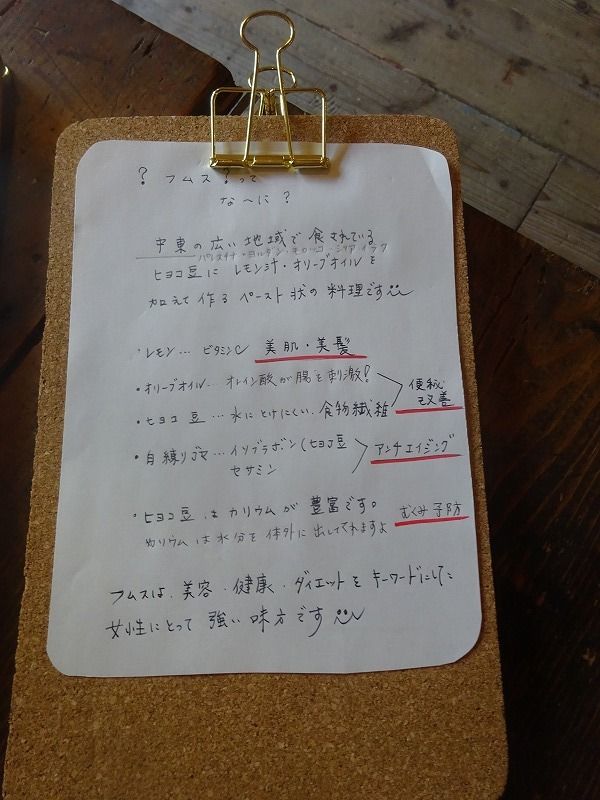 ? フムス?って
な〜に?
中東の広い地域で食されている
パレスチナ・ヨルダン・モロッコ・シリア イラク
ヒヨコ豆に レモン汁・オリーブオイルを
加えて作る ペースト状の料理です
・レモン… ビタミンC 美肌・美髪
・オリーブオイル… オレイン酸が腸を刺激!
便秘
改善
・ヒヨコ豆 …水にとけにくい、食物繊維
・白練りゴマ…イソフラボン(ヒヨコ豆
アンチエイジング
セサミン
・ヒヨコ豆はカリウムが豊富です。
むくみ予防
カリウムは水分を体外に出してくれますよ
フムスは、美容・健康・ダイエットをキーワードにした
女性にとって強い味方です